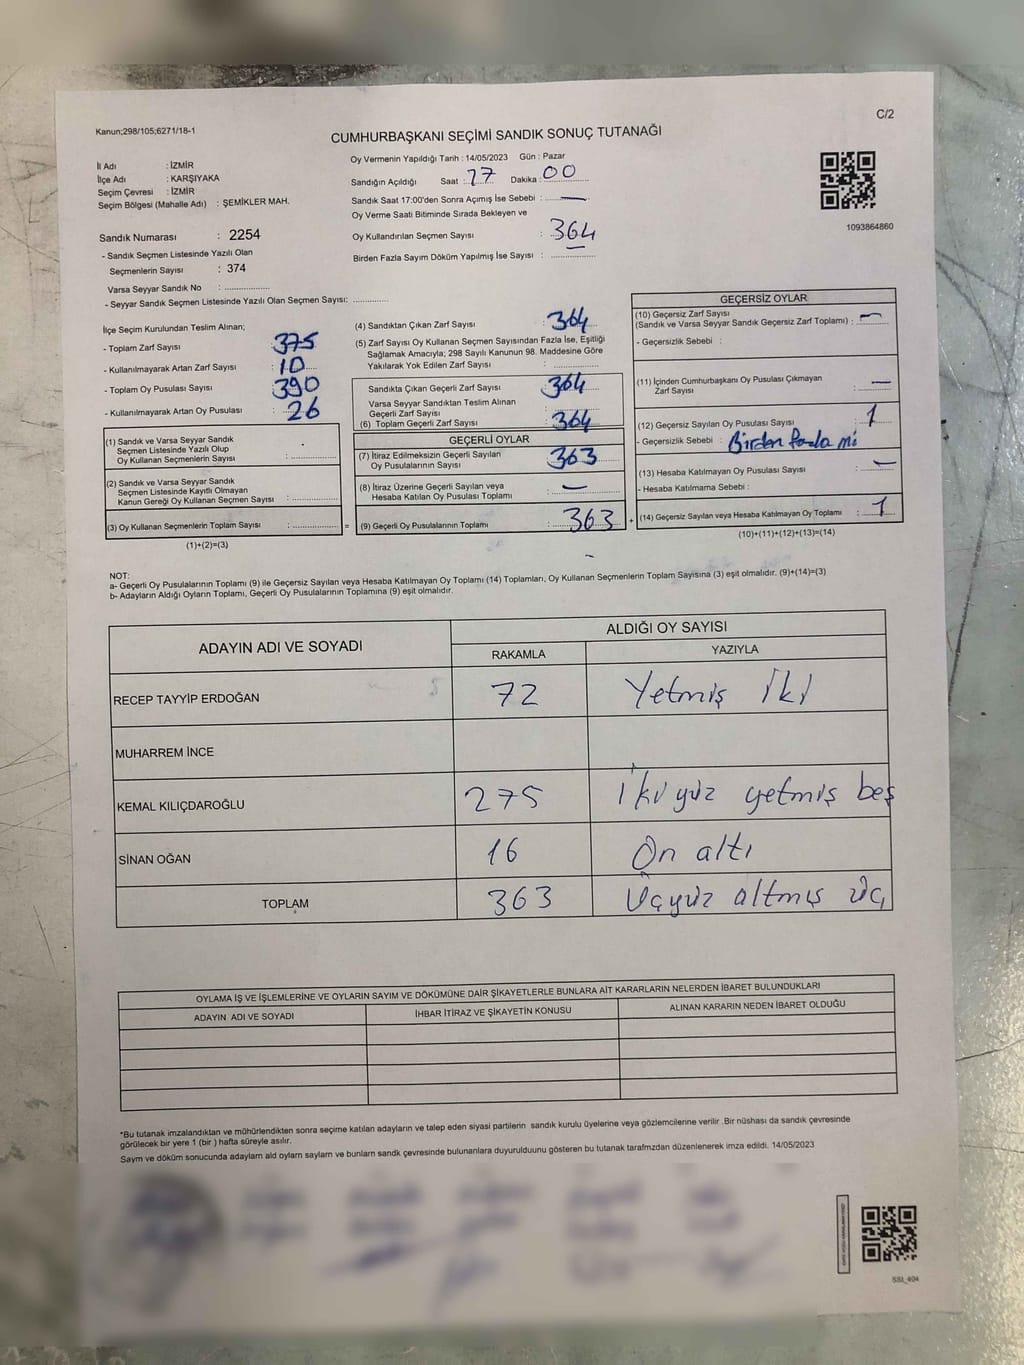 Kanun;298/105;6271/18-1
C/2
CUMHURBAŞKANI SEÇİMİ SANDIK SONUÇ TUTANAĞI
İl Adı : İZMİR
İlçe Adı : KARŞIYAKA
Seçim Çevresi : İZMİR
Seçim Bölgesi (Mahalle Adı) : ŞEMİKLER MAH.
Sandık Numarası : 2254
- Sandık Seçmen Listesinde Yazılı Olan
Seçmenlerin Sayısı : 374
Varsa Seyyar Sandık No :
- Seyyar Sandık Seçmen Listesinde Yazılı Olan Seçmen Sayısı:
Oy Vermenin Yapıldığı Tarih : 14/05/2023 Gün : Pazar
Sandığın Açıldığı Saat : 17 Dakika : 00
Sandık Saat 17:00'den Sonra Açımış İse Sebebi : —
Oy Verme Saati Bitiminde Sırada Bekleyen ve
Oy Kullandırılan Seçmen Sayısı : 364
Birden Fazla Sayım Döküm Yapılmış İse Sayısı : —
1093864860
İlçe Seçim Kurulundan Teslim Alınan;
- Toplam Zarf Sayısı : 375
- Kullanılmayarak Artan Zarf Sayısı : 10
- Toplam Oy Pusulası Sayısı : 390
- Kullanılmayarak Artan Oy Pusulası : 26
(1) Sandık ve Varsa Seyyar Sandık
Seçmen Listesinde Yazılı Olup
Oy Kullanan Seçmenlerin Sayısı :
(2) Sandık ve Varsa Seyyar Sandık
Seçmen Listesinde Kayıtlı Olmayan
Kanun Gereği Oy Kullanan Seçmen Sayısı :
(3) Oy Kullanan Seçmenlerin Toplam Sayısı : =
(1)+(2)=(3)
(4) Sandıktan Çıkan Zarf Sayısı : 364
(5) Zarf Sayısı Oy Kullanan Seçmen Sayısından Fazla İse, Eşitliği
Sağlamak Amacıyla; 298 Sayılı Kanunun 98. Maddesine Göre
Yakılarak Yok Edilen Zarf Sayısı :
Sandıkta Çıkan Geçerli Zarf Sayısı : 364
Varsa Seyyar Sandıktan Teslim Alınan
Geçerli Zarf Sayısı :
(6) Toplam Geçerli Zarf Sayısı : 364
GEÇERLİ OYLAR
(7) İtiraz Edilmeksizin Geçerli Sayılan
Oy Pusulalarının Sayısı : 363
(8) İtiraz Üzerine Geçerli Sayılan veya
Hesaba Katılan Oy Pusulası Toplamı : —
(9) Geçerli Oy Pusulalarının Toplamı : 363 +
GEÇERSİZ OYLAR
(10) Geçersiz Zarf Sayısı
(Sandık ve Varsa Seyyar Sandık Geçersiz Zarf Toplamı) : —
- Geçersizlik Sebebi :
(11) İçinden Cumhurbaşkanı Oy Pusulası Çıkmayan
Zarf Sayısı : —
(12) Geçersiz Sayılan Oy Pusulası Sayısı : 1
- Geçersizlik Sebebi : Birden fazla
(13) Hesaba Katılmayan Oy Pusulası Sayısı : —
- Hesaba Katılmama Sebebi :
(14) Geçersiz Sayılan veya Hesaba Katılmayan Oy Toplamı : 1
(10)+(11)+(12)+(13)=(14)
NOT:
a- Geçerli Oy Pusulalarının Toplamı (9) ile Geçersiz Sayılan veya Hesaba Katılmayan Oy Toplamı (14) Toplamları, Oy Kullanan Seçmenlerin Toplam Sayısına (3) eşit olmalıdır. (9)+(14)=(3)
b- Adayların Aldığı Oyların Toplamı, Geçerli Oy Pusulalarının Toplamına (9) eşit olmalıdır.
ADAYIN ADI VE SOYADI
ALDIĞI OY SAYISI
RAKAMLA YAZIYLA
RECEP TAYYİP ERDOĞAN 72 Yetmiş İki
MUHARREM İNCE
KEMAL KILIÇDAROĞLU 275 İki yüz yetmiş beş
SİNAN OĞAN 16 On altı
TOPLAM 363 Üçyüz altmış üç
OYLAMA İŞ VE İŞLEMLERİNE VE OYLARIN SAYIM VE DÖKÜMÜNE DAİR ŞİKAYETLERLE BUNLARA AİT KARARLARIN NELERDEN İBARET BULUNDUKLARI
ADAYIN ADI VE SOYADI İHBAR İTİRAZ VE ŞİKAYETİN KONUSU ALINAN KARARIN NEDEN İBARET OLDUĞU
*Bu tutanak imzalandıktan ve mühürlendikten sonra seçime katılan adayların ve talep eden siyasi partilerin sandık kurulu üyelerine veya gözlemcilerine verilir .Bir nüshası da sandık çevresinde
görülecek bir yere 1 (bir ) hafta süreyle asılır.
Saym ve döküm sonucunda adaylarn ald oylarn saylarn ve bunlarn sandk çevresinde bulunanlara duyurulduunu gösteren bu tutanak tarafmzdan düzenlenerek imza edildi. 14/05/2023
SSI_404